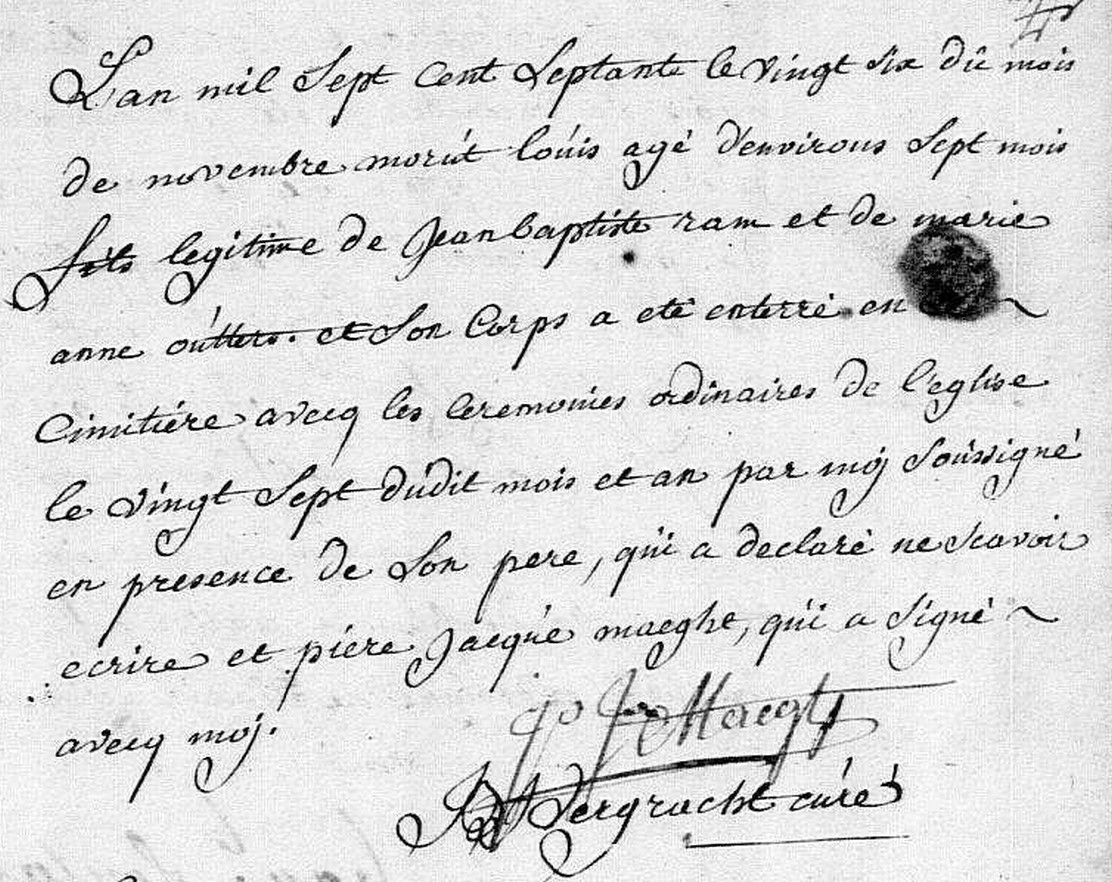 L'an mil Sept Cent Septante le vingt six du mois
de novembre morut louis agé d'environs Sept mois
fils legitime de Jean baptiste ram et de marie
anne outters. et Son Corps a eté enterré en
Cimitiére avecq les Ceremoinies ordinaires de l'eglise
le vingt Sept dudit mois et an par moj Soussigné
en presence de Son pere, qui a declaré ne scavoir
ecrire et piére Jacque maeght, qui a Signé
avecq moj.
Maeght
Vergracht curé